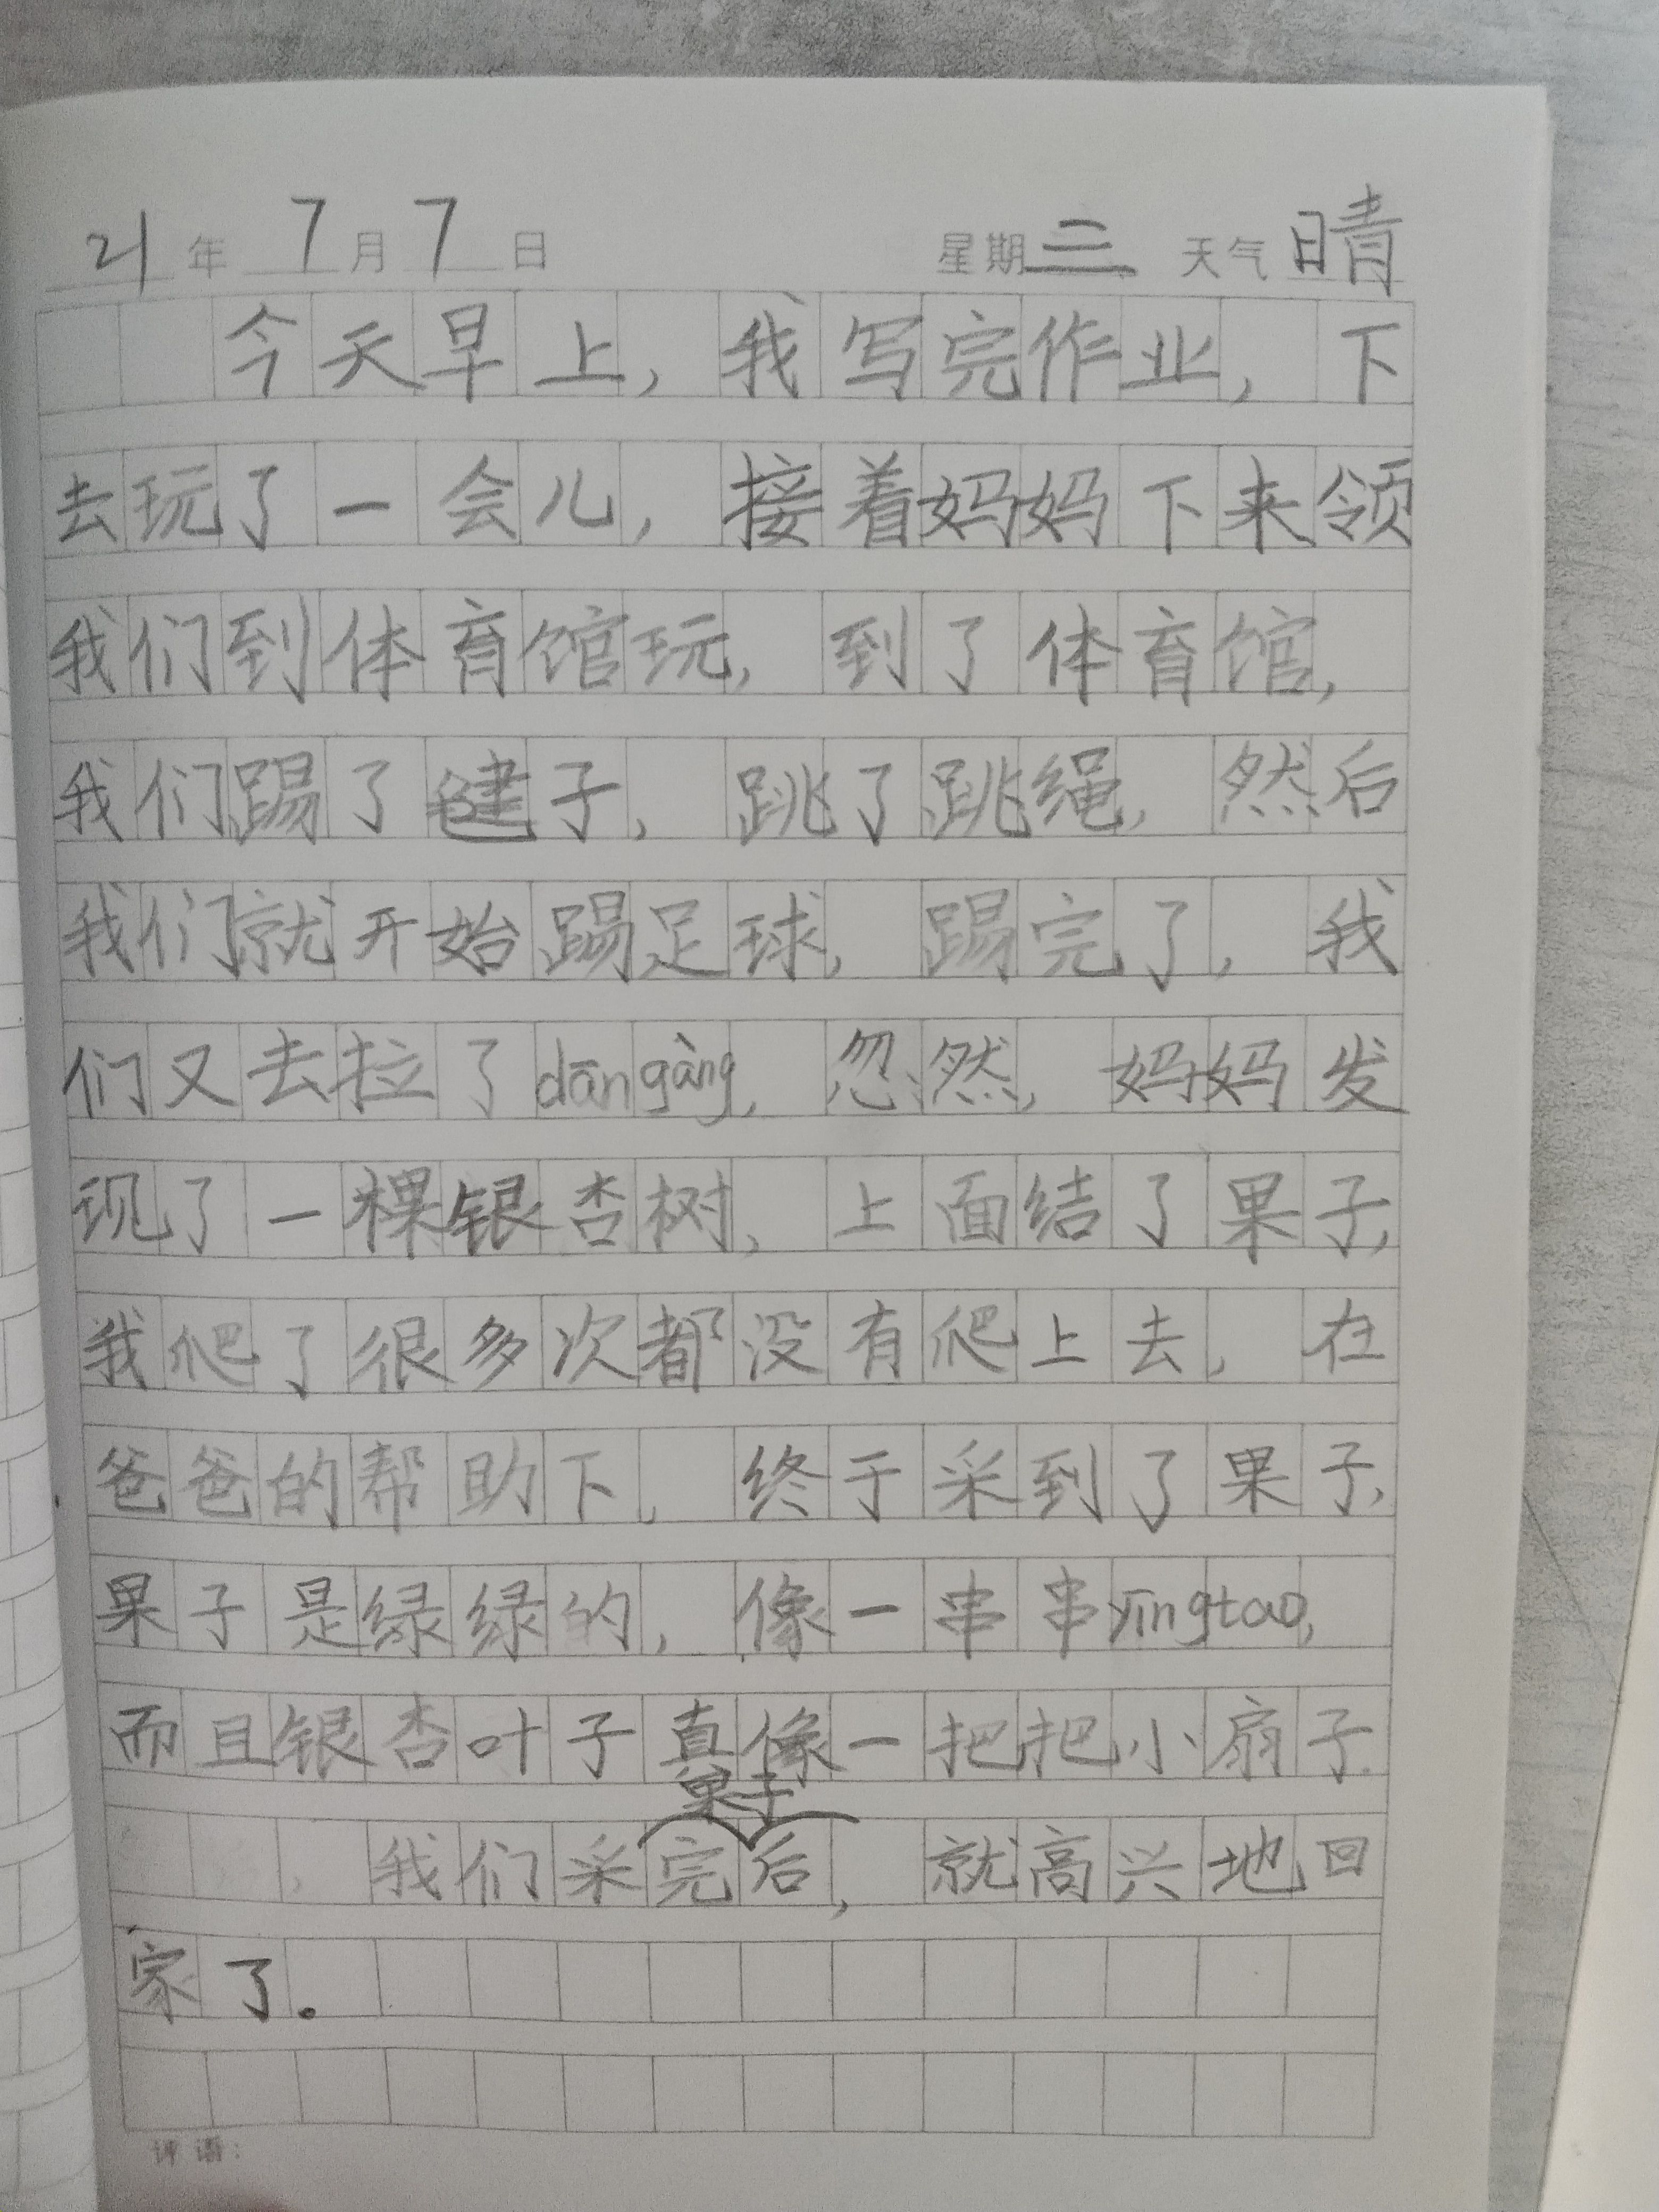 21年 7月 7日 星期三 天气晴
今天早上，我写完作业，下
去玩了一会儿，接着妈妈下来领
我们到体育馆玩，到了体育馆，
我们踢了毽子，跳了跳绳，然后
我们就开始踢足球，踢完了，我
们又去拉了dāngàng，忽然，妈妈发
现了一棵银杏树，上面结了果子，
我爬了很多次都没有爬上去，在
爸爸的帮助下，终于采到了果子，
果子是绿绿的，像一串串yīngtao，
而且银杏叶子真像一把把小扇子.
果子
我们采完后，就高兴地回
家了。
评语：